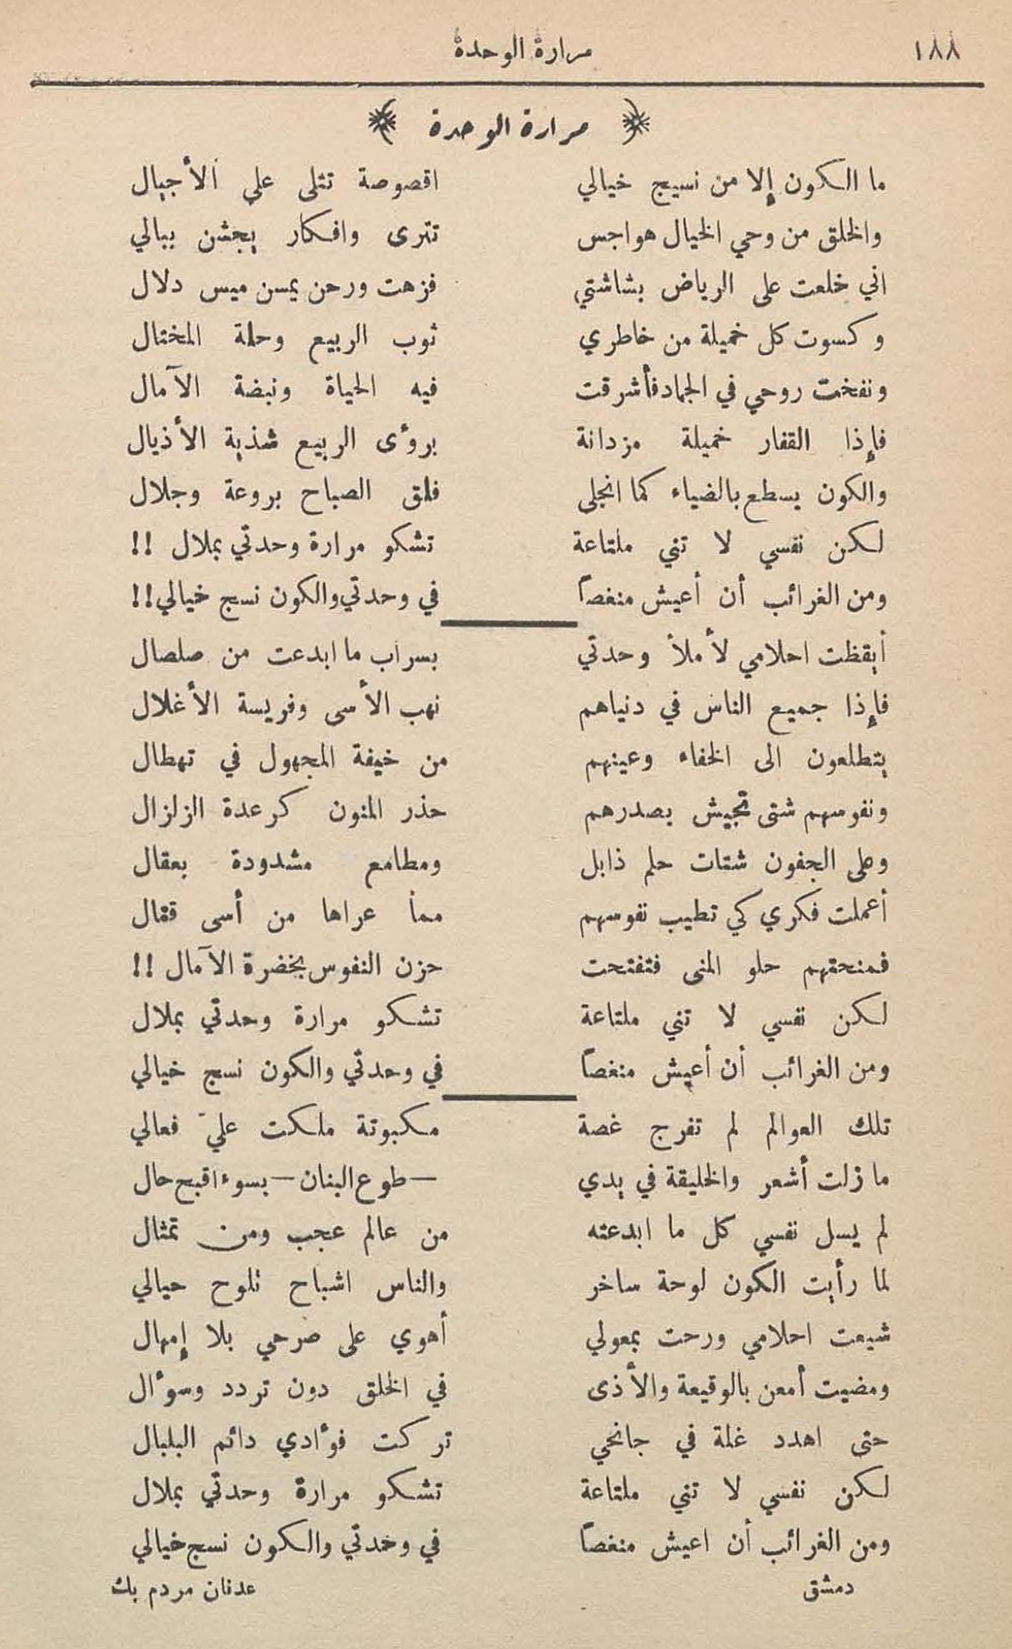 ١٨٨ مرارة الوحدة
مرارة الوحدة
ما الكون إلا من نسيج خيالي اقصوصة تتلى على الأجيال
والخلق من وحي الخيال هواجس تترى وافكار يجشن ببالي
اني خلعت على الرياض بشاشتي فزهت ورحن يمسن ميس دلال
وكسوت كل خميلة من خاطري ثوب الربيع وحلة المختال
ونفخت روحي في الجماد فأشرقت فيه الحياة ونبضة الآمال
فإذا القفار خميلة مزدانة برؤى الربيع شذية الأذيال
والكون يسطع بالضياء كما انجلى فلق الصباح بروعة وجلال
لكن نفسي لا تني ملتاعة تشكو مرارة وحدتي بملال !!
ومن الغرائب أن أعيش منغصاً في وحدتي والكون نسج خيالي!!
أيقظت احلامي لأملأ وحدتي بسراب ما ابدعت من صلصال
فإذا جميع الناس في دنياهم نهب الأسى وفريسة الأغلال
يتطلعون الى الخفاء وعينهم من خيفة المجهول في تهطال
ونفوسهم شتى تجيش بصدرهم حذر المنون كرعدة الزلزال
وعلى الجفون شتات حلم ذابل ومطامع مشدودة بعقال
أعملت فكري كي تطيب نفوسهم مما عراها من أسى قتال
فمنحتهم حلو المنى فتفتحت حزن النفوس بخضرة الآمال !!
لكن نفسي لا تني ملتاعة تشكو مرارة وحدتي بملال
ومن الغرائب أن أعيش منغصاً في وحدتي والكون نسج خيالي
تلك العوالم لم تفرج غصة مكبوتة ملكت عليّ فعالي
ما زلت أشعر والخليقة في يدي —طوع البنان— بسوء اقبح حال
لم يسل نفسي كل ما ابدعته من عالم عجب ومن تمثال
لما رأيت الكون لوحة ساخر والناس اشباح تلوح حيالي
شيعت احلامي ورحت بمعولي أهوي على صرحي بلا إمهال
ومضيت أمعن بالوقيعة والأذى في الخلق دون تردد وسؤال
حتى اهدد غلة في جانحي تركت فؤادي دائم البلبال
لكن نفسي لا تني ملتاعة تشكو مرارة وحدتي بملال
ومن الغرائب أن اعيش منغصاً في وحدتي والكون نسج خيالي
دمشق عدنان مردم بك